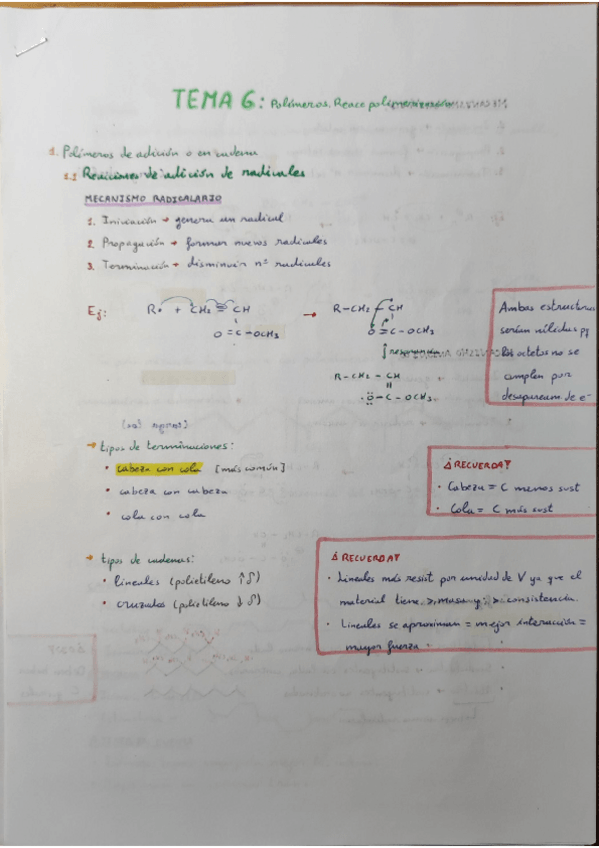 TEMA 6: Polímeros. Reacc polimerización
1. Polímeros de adición o en cadena
1.1 Reacciones de adición de radicales
MECANISMO RADICALARIO
1. Iniciación → genera un radical
2. Propagación → forman nuevos radicales
3. Terminación → disminuir nº radicales
Ej:
R• + CH2 = CH
O = C - OCH3
→
R-CH2 - CH
O = C - OCH3
resonancia
R-CH2 - CH
O - C - OCH3
Ambas estructuras
serían válidas pq
los octetos no se
cumplen por
desapaream de e-
→ tipos de terminaciones:
• cabeza con cola [más común]
• cabeza con cabeza
• cola con cola
¡RECUERDA!
• Cabeza = C menos sust
• Cola = C más sust
→ tipos de cadenas:
• lineales (polietileno ↑ δ)
• cruzadas (polietileno ↓ δ)
¡RECUERDA!
• Lineales más resist por unidad de V ya que el
material tiene > masa y > consistencia.
• Lineales se aproximan = mejor interacción =
mayor fuerza